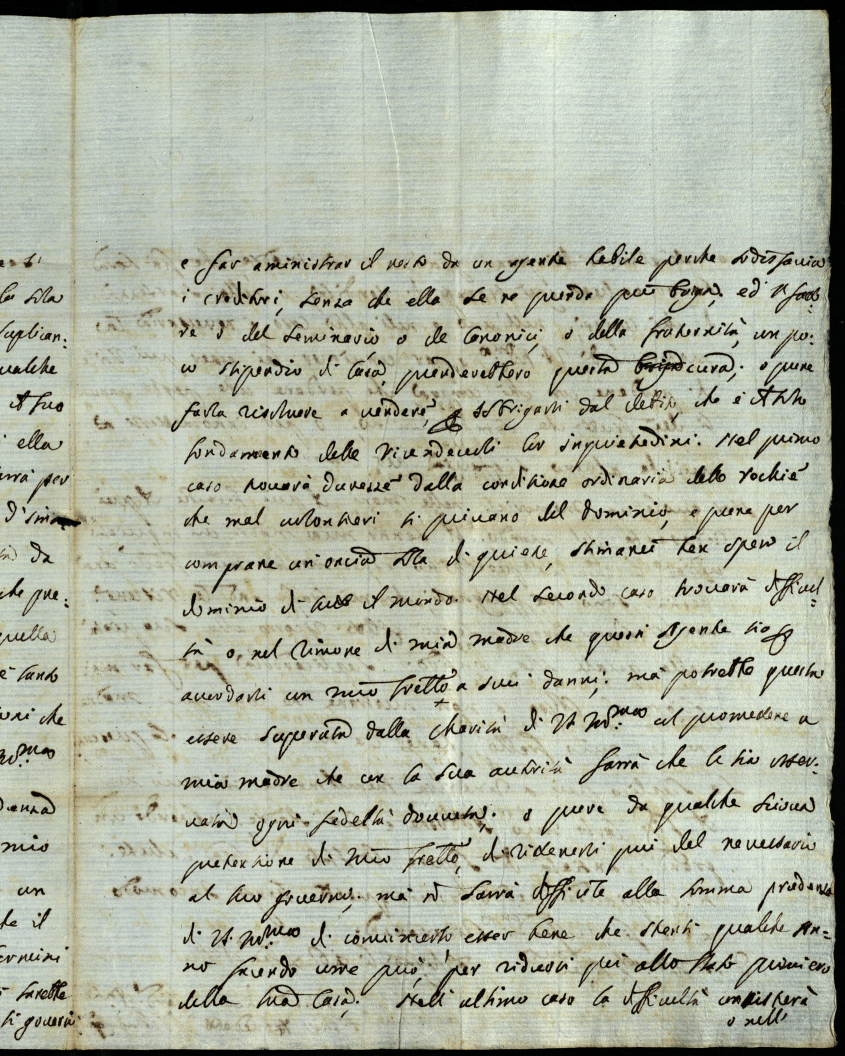 e far aministrar il resto da un agente habile perche sodisfacia
i creditori, senza che ella se ne prenda più briga, ed il fatto-
re ò del Seminario, o de Canonici, ò della fraternità, un po:
co stipendio di Casa, prenderebbero questa cura; o pure
farla risolvere a vendere, e sbrigarsi dal debito, che è tutto
fondamento delle vicendevoli lor inquietedini. Nel primo
caso trovarà durezze dalla conditione ordinaria delle vechie
che mal volontieri si privano del dominio, e pure per
comprare un'oncia sola di quiete, stimarei ben speso il
dominio di tutto il mondo. Nel secondo caso trovarà difficol:
tà o nel timore di mia madre che questi Agente sia p
acordarsi con mio fratello a suoi danni; mà potrebbe questo
essere superata dalla Charità di V.S. col promedere a
mia madre che con la sua autorità farrà che le sia osser:
vata ogni fedeltà dovuta; o pure da qualche sciocca
pretentione di mio fratello, di ritenersi più del necessario
al suo governo; mà nò sarrà difficile alla somma prudenza
di V.S. di convincerlo esser bene che stenti qualche An=
no facendo come può, per ridursi poi allo stato primiero
della sua Casa. Nell ultimo caso la difficultà consisterà
o nell'
e si
la sola
suplican:
qualche
il suo
ella
per
da
che pre:
quella
tanto
che
mio
un
il
sarebbe
si govern